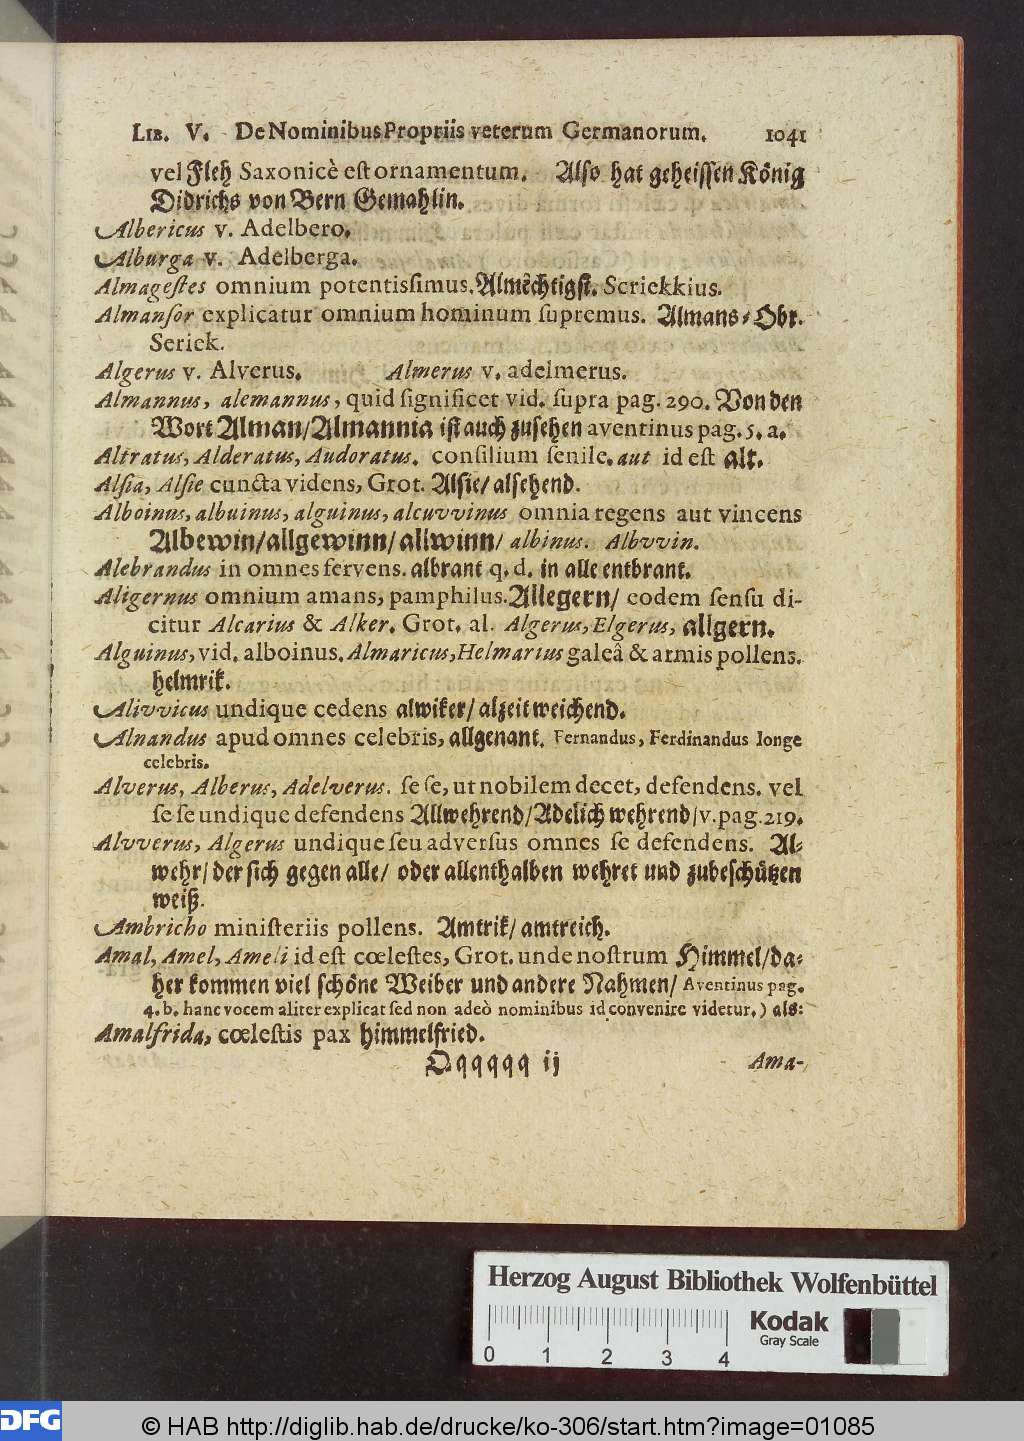 LIB. V. De Nominibus Propriis veterum Germanorum. 1041
vel Fleh Saxonicè est ornamentum. Also hat geheissen König
Didrichs von Bern Gemahlin.
Albericus v. Adelbero.
Alburga v. Adelberga.
Almagestes omnium potentissimus. Almêchtigst. Scriekkius.
Almansor explicatur omnium hominum supremus. Almans-Obr.
Scriek.
Algerus v. Alverus. Almerus v. adelmerus.
Almannus, alemannus, quid significet vid. supra pag. 290. Von den
Wort Alman/Almannia ist auch zusehen aventinus pag. 5. a.
Altratus, Alderatus, Audoratus. consilium senile. aut id est alt.
Alsia, Alsie cuncta videns, Grot. Alsie/alsehend.
Alboinus, albuinus, alguinus, alcuvvinus omnia regens aut vincens
Albewin/allgewinn/allwinn/ albinus. Albvvin.
Alebrandus in omnes fervens. albrant q. d. in alle entbrant.
Aligernus omnium amans, pamphilus. Allegern/ eodem sensu di-
citur Alcarius & Alker. Grot. al. Algerus, Elgerus, allgern.
Alguinus, vid. alboinus. Almaricus, Helmarius galeâ & armis pollens.
helmrik.
Alivvicus undique cedens alwiker/ alzeit weichend.
Alnandus apud omnes celebris, allgenant. Fernandus, Ferdinandus longe
celebris.
Alverus, Alberus, Adelverus. se se, ut nobilem decet, defendens. vel
se se undique defendens Allwehrend/Adelich wehrend/v. pag. 219.
Alvverus, Algerus undique seu adversus omnes se defendens. Al-
wehr/ der sich gegen alle/ oder allenthalben wehret und zubeschützen
weiß.
Ambricho ministeriis pollens. Amtrik/ amtreich.
Amal, Amel, Ameli id est cœlestes, Grot. unde nostrum Himmel/da-
her kommen viel schöne Weiber und andere Nahmen/ Aventinus pag.
4. b. hanc vocem aliter explicat sed non adeò nominibus id convenire videtur.) als:
Amalfrida, cœlestis pax himmelfried.
Qqqqqq ij Ama-
Herzog August Bibliothek Wolfenbüttel
Kodak
Gray Scale
0 1 2 3 4
DFG © HAB http://diglib.hab.de/drucke/ko-306/start.htm?image=01085